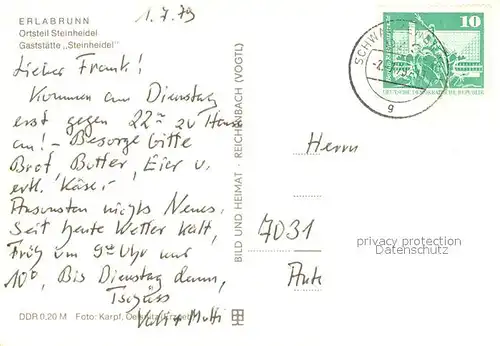 ERLABRUNN
Ortsteil Steinheidel
Gaststätte „Steinheidel"
1.7.79
Lieber Frank!
Kommen am Dienstag
erst gegen 22⁰⁰ zu Hause
an! – Besorge bitte
Brot, Butter, Eier u.
evtl. Käse.
Ansonsten nichts Neues.
Seit heute Wetter kalt,
Früh um 9⁰⁰ Uhr nur
10°, Bis Dienstag dann,
Tschüss
Vati + Mutti
DDR 0,20 M Foto: Karpf,
BILD UND HEIMAT · REICHENBACH (VOGTL)
10
DEUTSCHE DEMOKRATISCHE REPUBLIK
SCHWA
g
Herrn
7031
privacy protection
Datenschutz